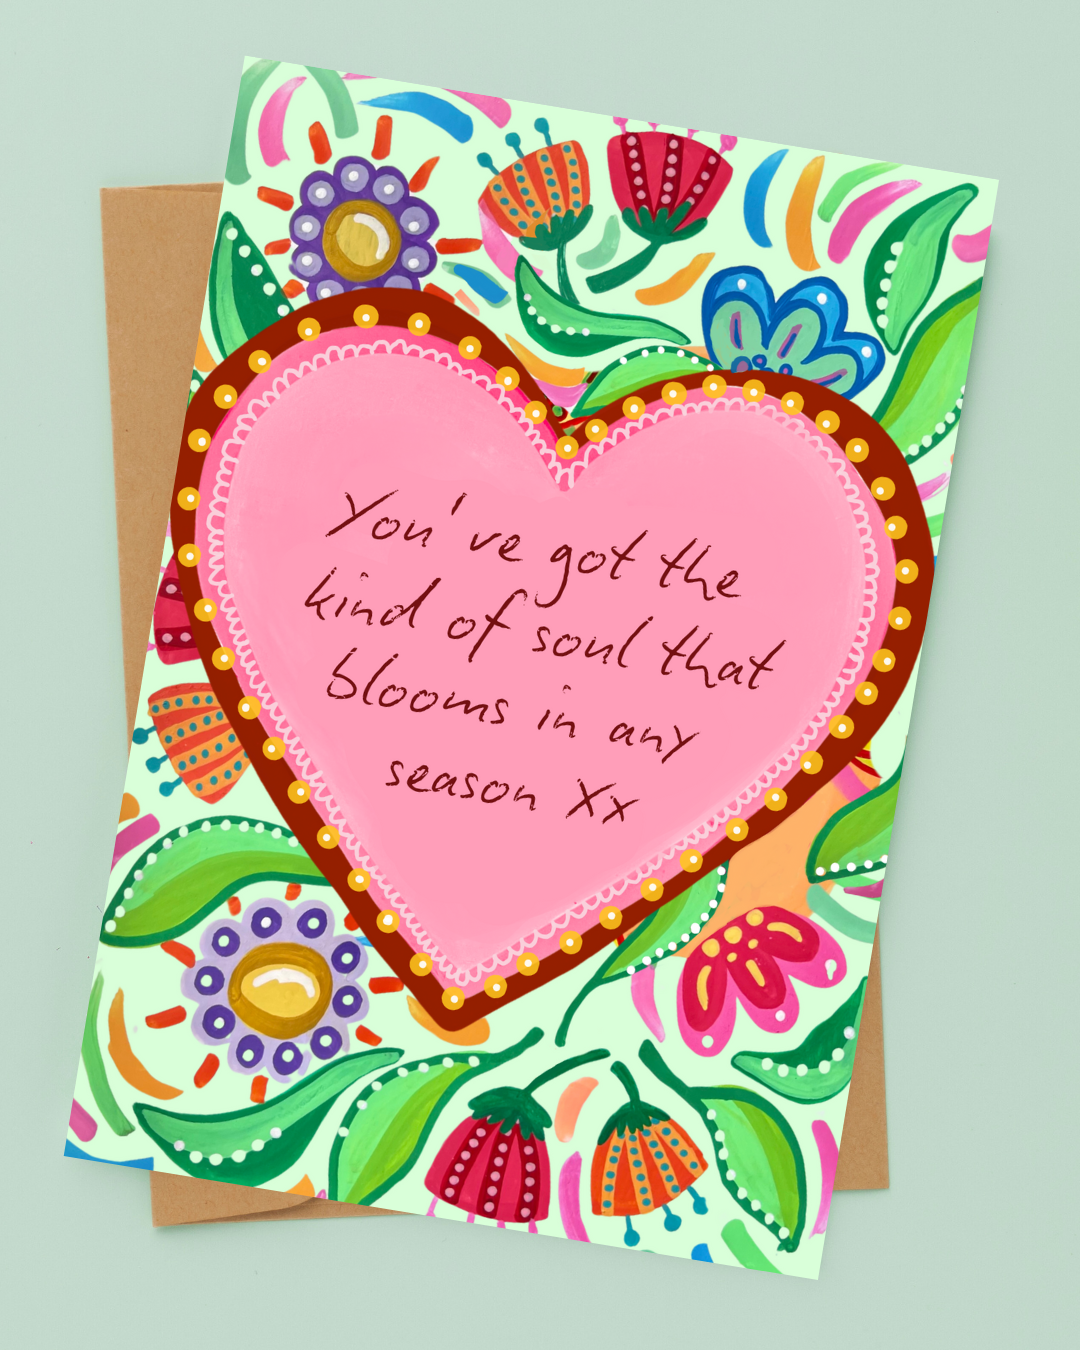 You've got the
kind of soul that
blooms in any
season Xx